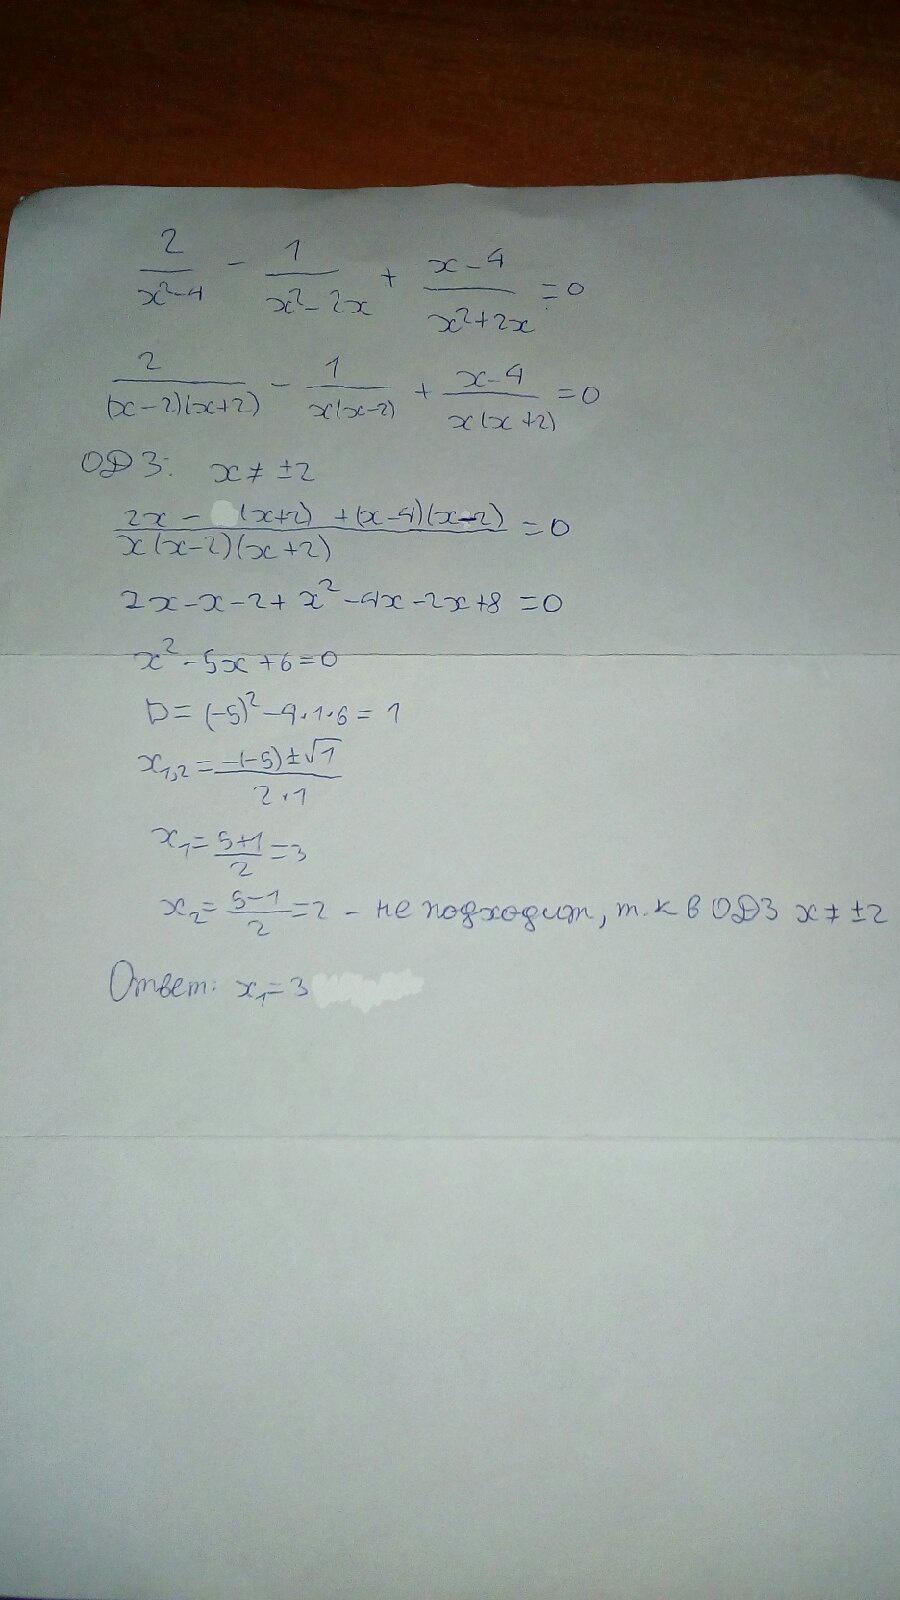 2/(x²-4) - 1/(x²-2x) + (x-4)/(x²+2x) = 0
2/((x-2)(x+2)) - 1/(x(x-2)) + (x-4)/(x(x+2)) = 0
ОДЗ: x ≠ ±2
(2x - (x+2) + (x-4)(x-2))/(x(x-2)(x+2)) = 0
2x-x-2+x²-4x-2x+8=0
x²-5x+6=0
D=(-5)²-4·1·6=1
x₁,₂=(-(-5)±√1)/(2·1)
x₁=(5+1)/2=3
x₂=(5-1)/2=2 - не подходит, т.к в ОДЗ x ≠ ±2
Ответ: x₁=3